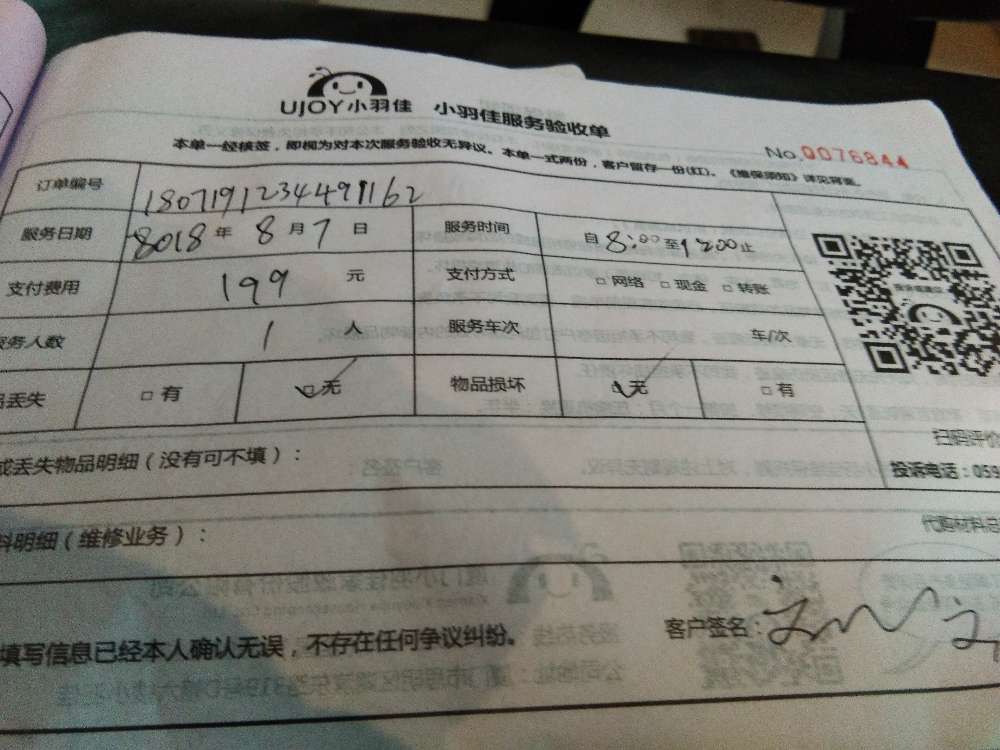 UJOY小羽佳 小羽佳服务验收单
No.0076844
本单一经核签，即视为对本次服务验收无异议。本单一式两份，客户留存一份(红)。《维保须知》详见背面。
订单编号 1807191234491162
服务日期 8018年8月7日 服务时间 自8:00至1200止
支付费用 199元 支付方式 □网络 □现金 □转账
务人数 1人 服务车次 车/次
丢失 □有 □无 物品损坏 无 □有
扫码评价
投诉电话：059
或丢失物品明细（没有可不填）：
代购材料总
料明细（维修业务）：
填写信息已经本人确认无误，不存在任何争议纠纷。 客户签名：